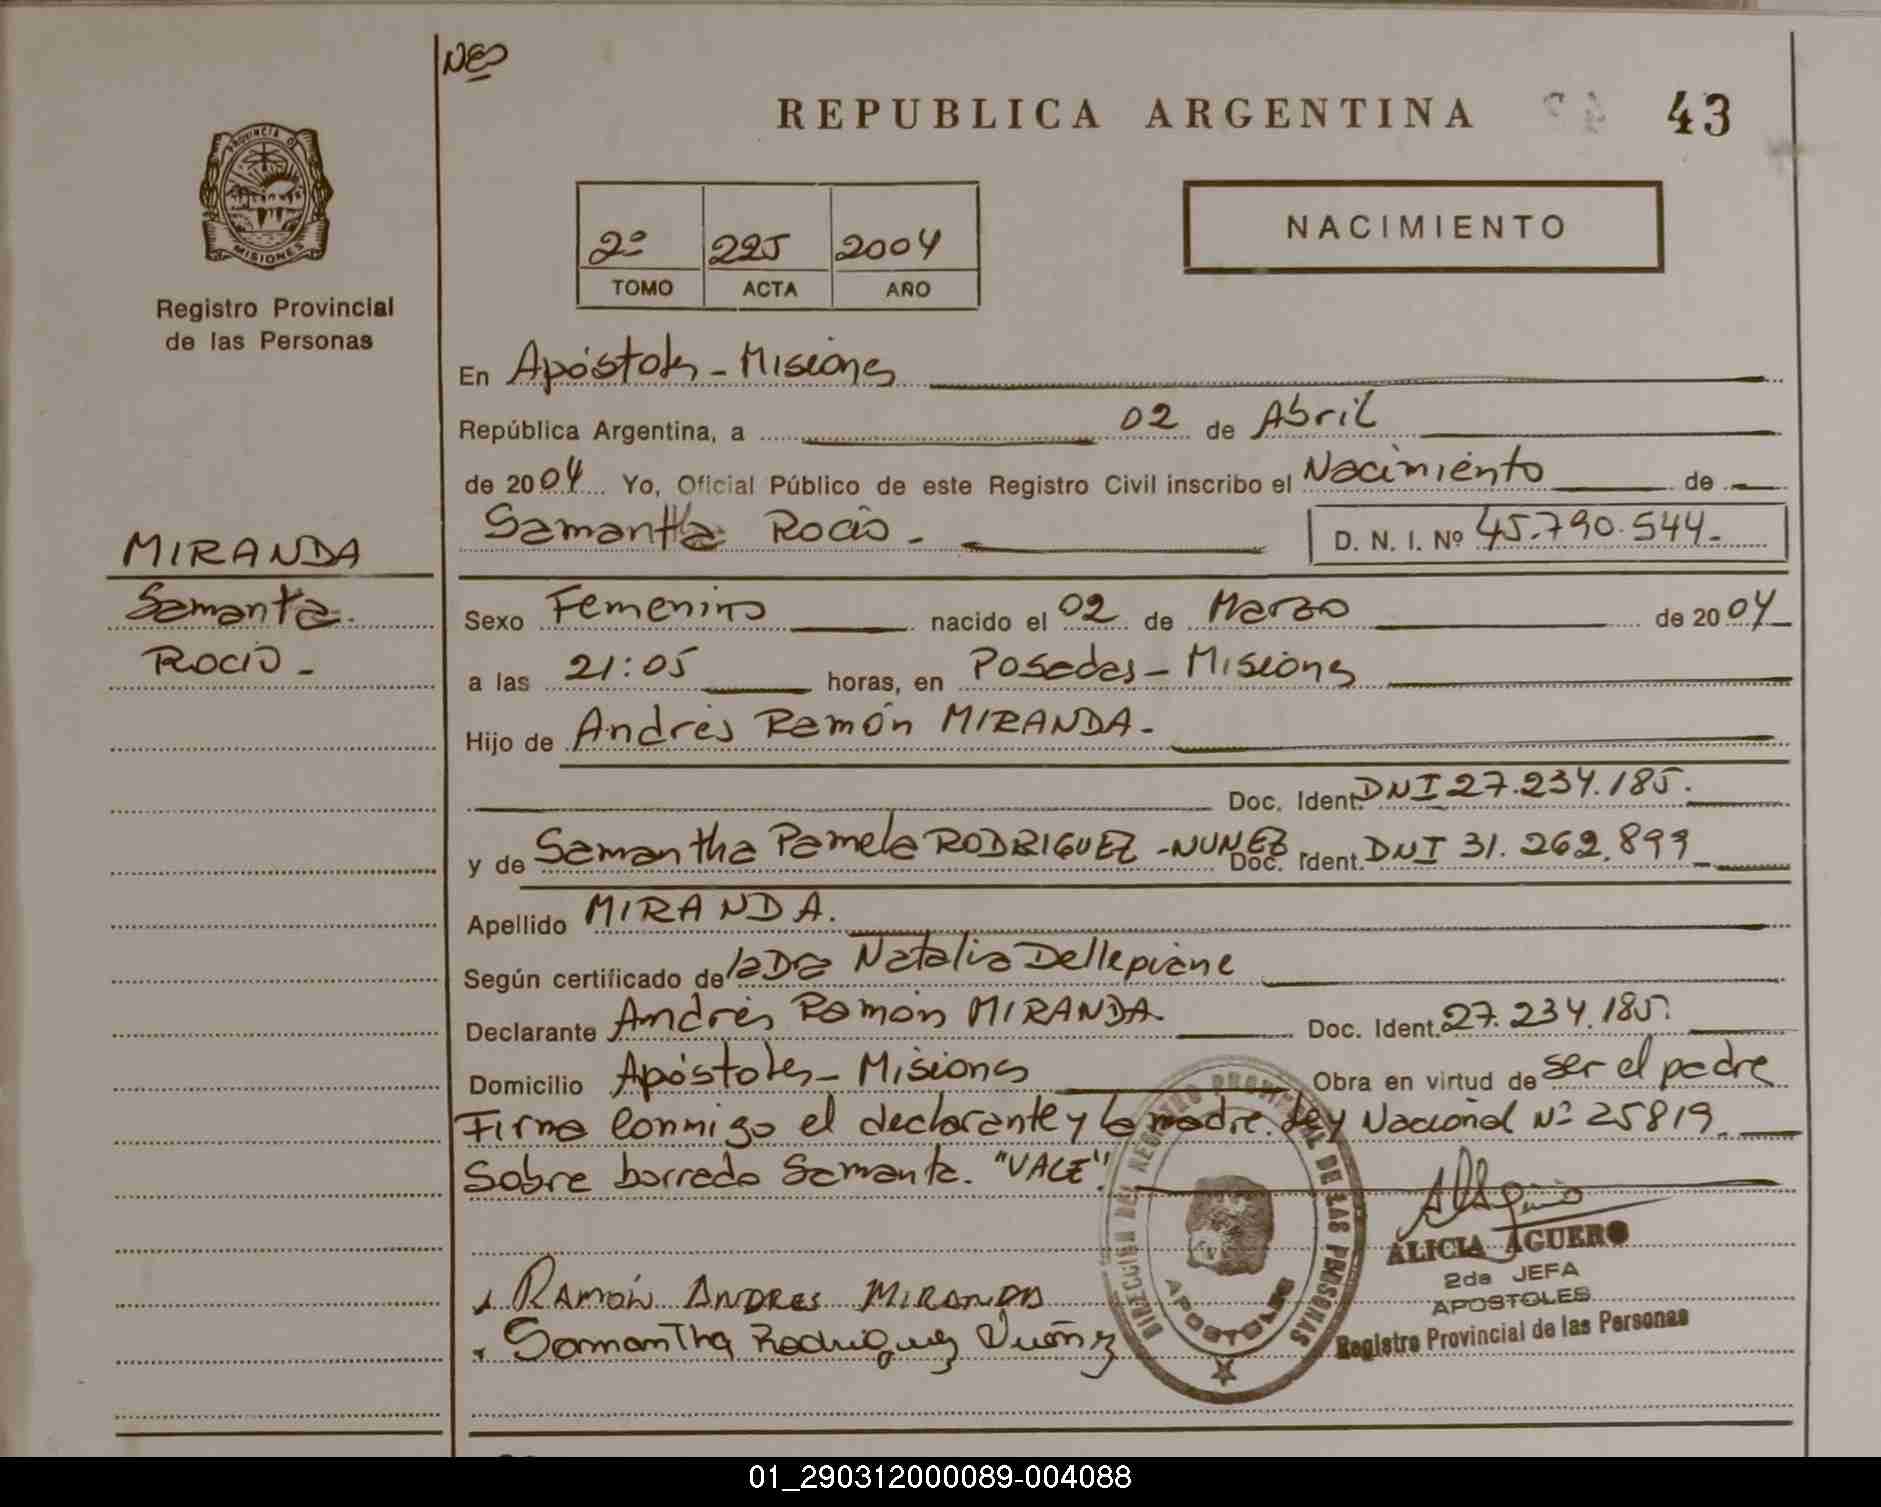 NES
REPUBLICA ARGENTINA 43
PROVINCIA D MISIONES
Registro Provincial
de las Personas
2º 225 2004
TOMO ACTA AÑO
NACIMIENTO
En Apóstoles - Misiones
República Argentina, a 02 de Abril
de 2004 Yo, Oficial Público de este Registro Civil inscribo el Nacimiento de
Samantha Rocio - D. N. I. Nº 45.790.544.-
MIRANDA
Samanta.
Rocio -
Sexo Femenino nacido el 02 de Marzo de 2004
a las 21:05 horas, en Posadas - Misiones
Hijo de Andrés Ramón MIRANDA -
Doc. Ident. DNI 27.234.185.
y de Samantha Pamela RODRIGUEZ - NUNEZ. Doc. Ident. DNI 31.262.899
Apellido MIRANDA.
Según certificado de la Dra Natalia Dellepiane
Declarante Andrés Ramón MIRANDA. Doc. Ident. 27.234.185.
Domicilio Apóstoles - Misiones Obra en virtud de ser el padre
Firma conmigo el declarante y la madre. Ley Nacional Nº 25819
Sobre borrado Samanta. "VALE".
RAMÓN ANDRES MIRANDA
Samantha Rodriguez Nuñez
DIRECCIÓN DEL REGISTRO PROVINCIAL DE LAS PERSONAS
APOSTOLES
ALICIA AGUERO
2da JEFA
APOSTOLES
Registro Provincial de las Personas
01_290312000089-004088